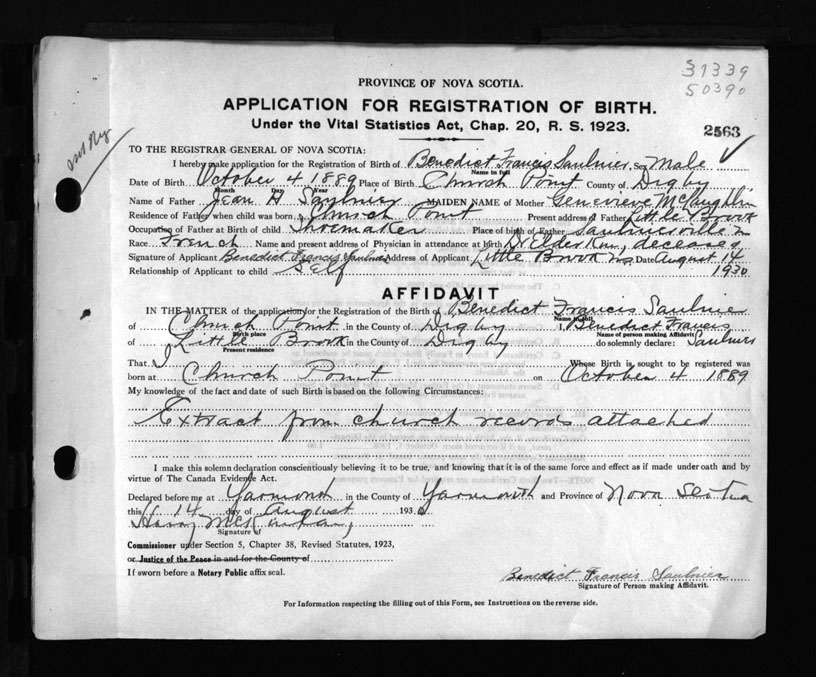 31339
50390
PROVINCE OF NOVA SCOTIA.
APPLICATION FOR REGISTRATION OF BIRTH.
Under the Vital Statistics Act, Chap. 20, R. S. 1923.
2563
TO THE REGISTRAR GENERAL OF NOVA SCOTIA:
I hereby make application for the Registration of Birth of Benedict Francis Saulnier Sex Male
Name in full
Date of Birth October 4 1889 Place of Birth Church Point County of Digby
Month Day Year
Name of Father Jean H Saulnier MAIDEN NAME of Mother Genevieve McLaughlin
Residence of Father when child was born Church Point Present address of Father Little Brook
Occupation of Father at Birth of child Shoemaker Place of birth of Father Saulnierville
Race French Name and present address of Physician in attendance at birth Dr Elder deceased
Signature of Applicant Benedict Francis Saulnier Address of Applicant Little Brook NS Date August 14
Relationship of Applicant to child SELF 1930
AFFIDAVIT
IN THE MATTER of the application for the Registration of the Birth of Benedict Francis Saulnier
Name in full
of Church Point in the County of Digby I, Benedict Francis
Birth place Name of person making Affidavit
of Little Brook in the County of Digby do solemnly declare: Saulnier
Present residence
That I Whose Birth is sought to be registered was
born at Church Point on October 4 1889
My knowledge of the fact and date of such Birth is based on the following Circumstances:
Extract from church records attached
I make this solemn declaration conscientiously believing it to be true, and knowing that it is of the same force and effect as if made under oath and by
virtue of The Canada Evidence Act.
Declared before me at Yarmouth in the County of Yarmouth and Province of Nova Scotia
this 14 day of August 1930
Signature of
Commissioner under Section 5, Chapter 38, Revised Statutes, 1923,
or Justice of the Peace in and for the County of
If sworn before a Notary Public affix seal.
Benedict Francis Saulnier
Signature of Person making Affidavit.
For Information respecting the filling out of this Form, see Instructions on the reverse side.